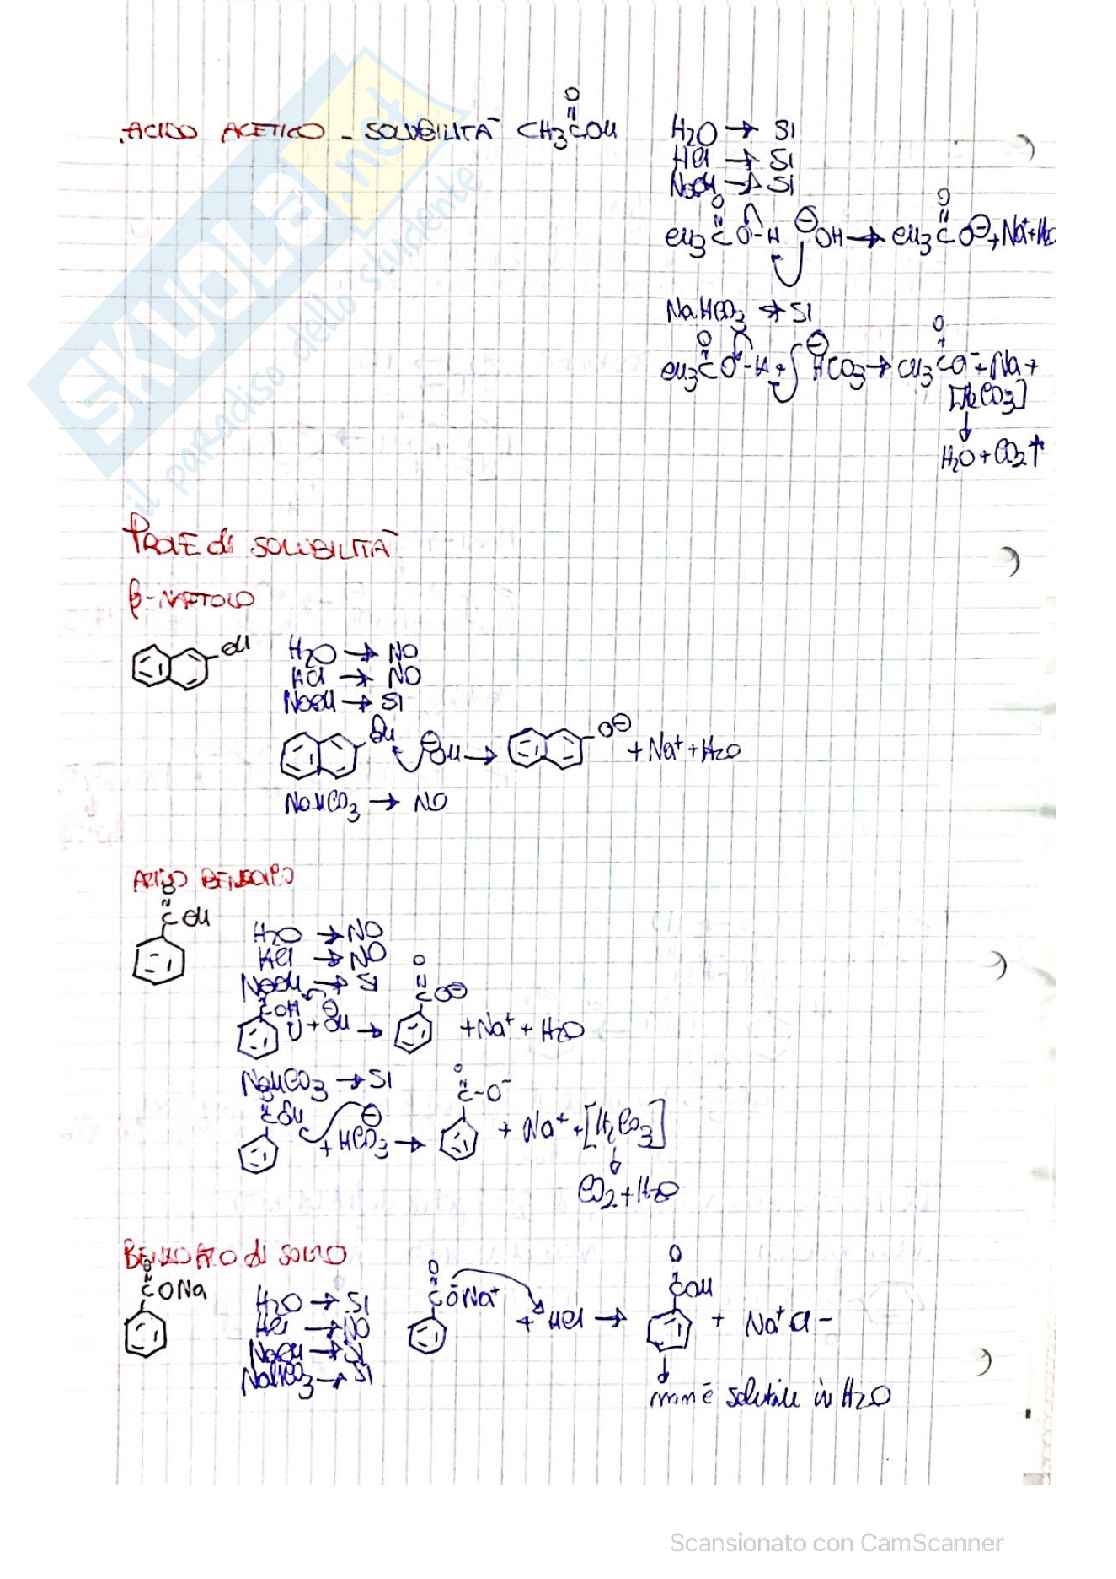 ACIDO ACETICO - SOLUBILITÀ CH3COH
O
H2O → SI
HCl → SI
NaOH → SI
O O
CH3C O-H ⊖OH → CH3C O⊖ + Na+ + H2O
NaHCO3 → SI
O O
CH3C O-H + ⊖HCO3 → CH3CO- + Na +
[H2CO3]
↓
H2O + CO2↑
PROVE di SOLUBILITÀ
β-NAFTOLO
OH
H2O → NO
HCl → NO
NaOH → SI
OH ⊖OH → O⊖ + Na+ + H2O
NaHCO3 → NO
ACIDO BENZOICO
O
COH
H2O → NO
HCl → NO
NaOH → SI
O
COH + ⊖OH → CO⊖ + Na+ + H2O
NaHCO3 → SI
O
COH + HCO3⊖ → C-O- + Na+ + [H2CO3]
↓
CO2 + H2O
BENZOATO di SODIO
O
CONa
H2O → SI
HCl → NO
NaOH → SI
NaHCO3 → SI
O O
CO-Na+ + HCl → COH + Na+Cl-
↓
non è solubile in H2O
SKUOLA.net
il paradiso dello studente
Scansionato con CamScanner